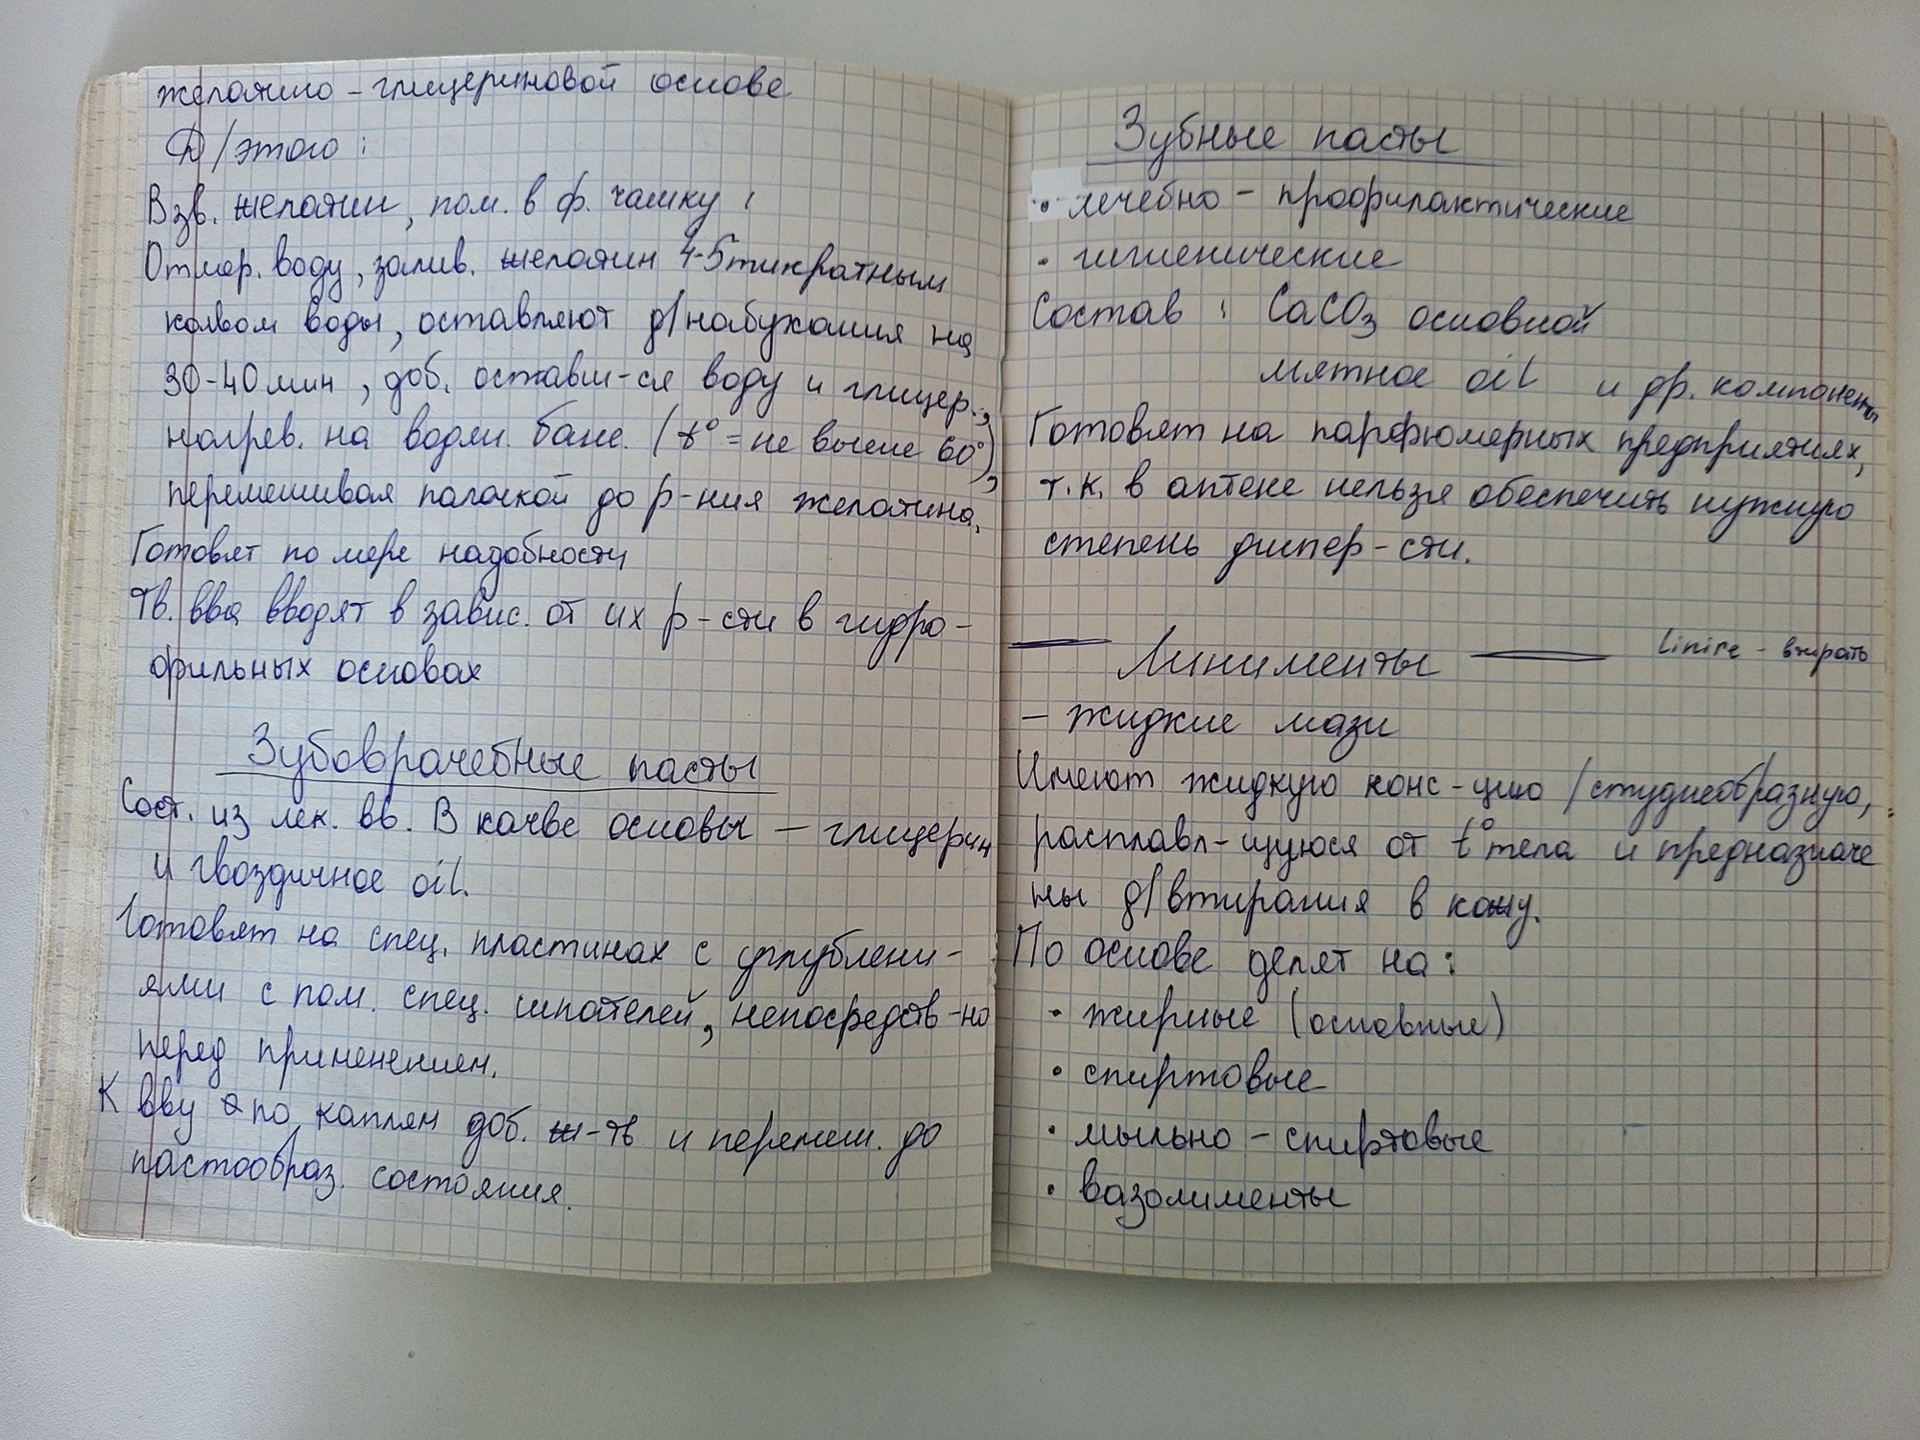 желатино-глицериновой основе
Д/этого:
Взв. желатин, пом. в ф. чашку,
Отмер. воду, залив. желатин 4-5тикратным
колвом воды, оставляют д/набухания на
30-40 мин, доб. оставш-ся воду и глицер.,
нагрев. на водян. бане. (t° = не выше 60°),
перемешивая палочкой до р-ния желатина.
Готовят по мере надобности
Тв. вва вводят в завис. от их р-сти в гидро-
фильных основах
Зубоврачебные пасты
Сост. из лек. вв. В качве основы – глицерин
и гвоздичное oil.
Готовят на спец. пластинах с углублени-
ями с пом. спец. шпателей, непосредств-но
перед применением.
К вву по каплям доб. ж-тв и перемеш. до
пастообраз. состояния.
Зубные пасты
• лечебно – профилактические
• гигиенические
Состав: CaCO₃ основной
мятное oil и др. компоненты
Готовят на парфюмерных предприятиях,
т.к. в аптеке нельзя обеспечить нужную
степень диспер-сти.
Линименты
Linire – втирать
– жидкие мази
Имеют жидкую конс-цию /студнеобразную,
расплавл-щуюся от t° тела и предназначе
ны д/втирания в кожу.
По основе делят на:
• жирные (основные)
• спиртовые
• мыльно – спиртовые
• вазолименты